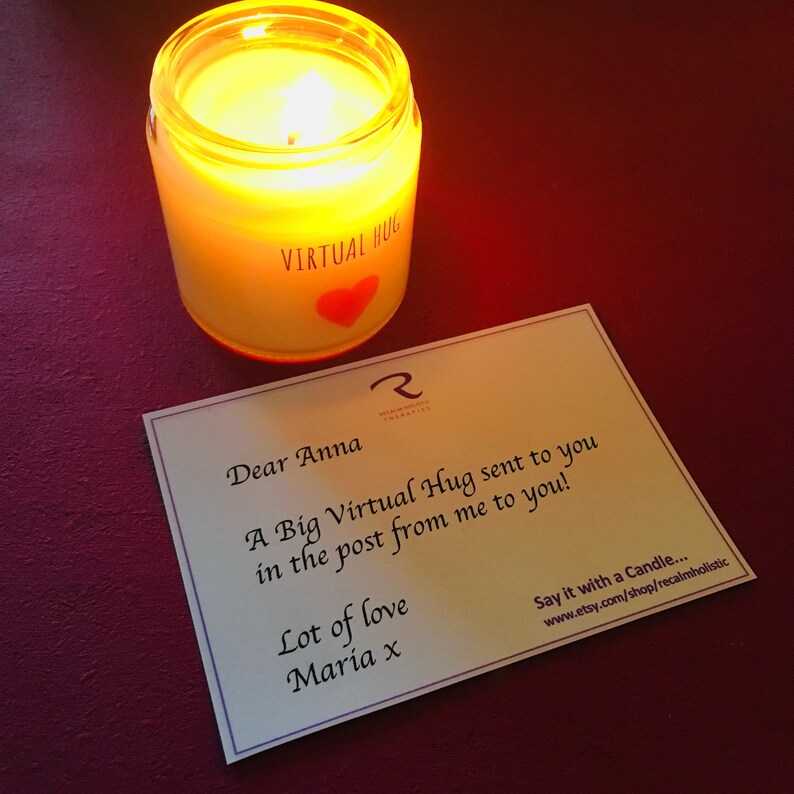 VIRTUAL HUG
R
RECALM HOLISTIC
THERAPIES
Dear Anna
A Big Virtual Hug sent to you
in the post from me to you!
Lot of love
Maria x
Say it with a Candle...
www.etsy.com/shop/recalmholistic